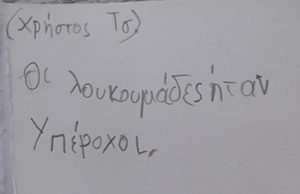 (Χρήστος Τσ.)
Οι λουκουμάδες ήταν
Υπέροχοι.